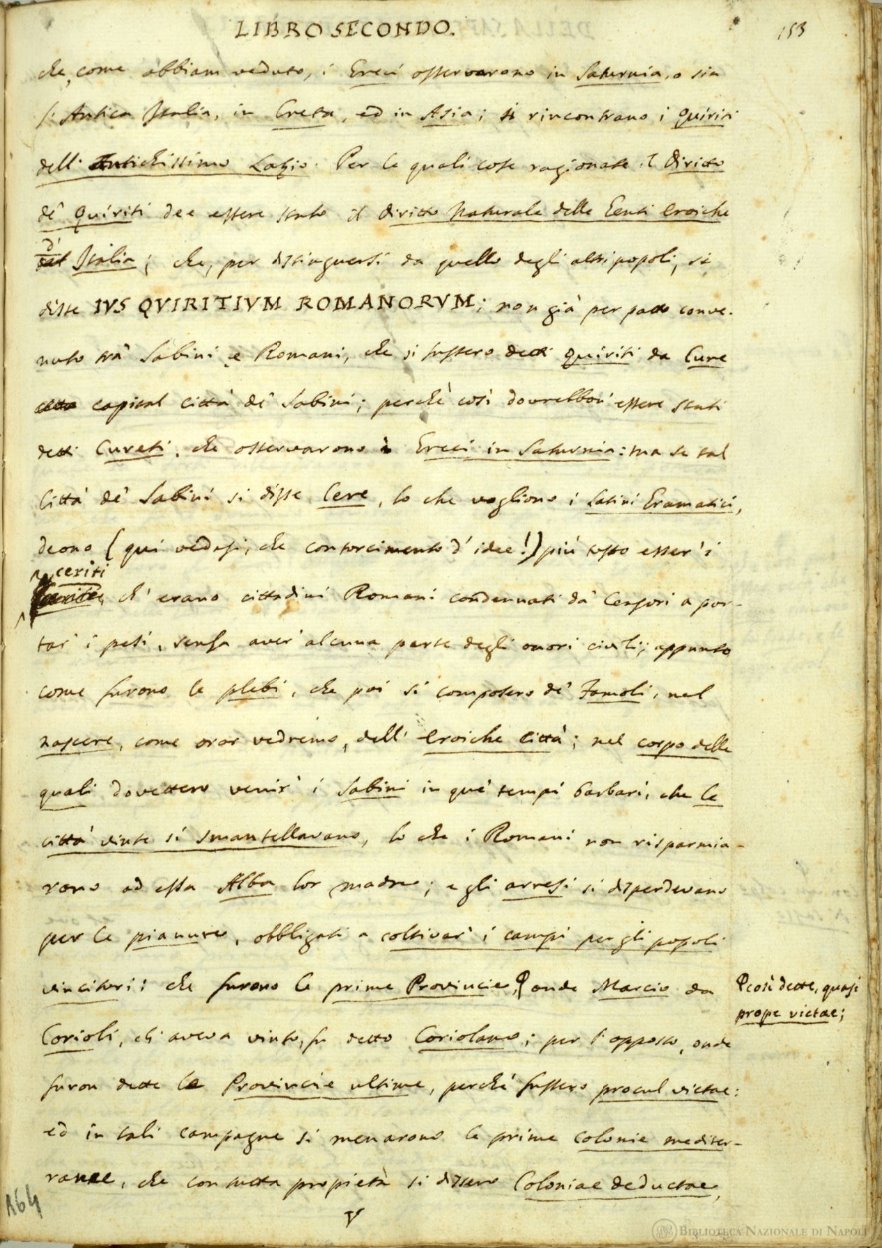 LIBRO SECONDO.
153
che, come abbiam veduto, i Greci osservarono in Saturnia, o sia
l'Antica Italia, in Creta, ed in Asia; si rincontrano i Quiriti
dell'Antichissimo Lazio. Per le quali cose ragionate il Diritto
de' Quiriti dee essere stato il diritto Naturale delle Genti eroiche
d'
Italia; che, per distinguersi da quello degli altri popoli, si
disse IVS QVIRITIVM ROMANORVM; non già per patto conve-
nuto trà Sabini, e Romani, che si fussero detti Quiriti da Cure
capital città de' Sabini; perchè così dovrebbon' essere stati
detti Cureti, che osservarono i Greci in Saturnia: ma se tal
Città de' Sabini si disse Cere, lo che vogliono i Latini Gramatici,
deono (qui vedasi, che contorcimento d'idee!) più tosto esser' i
ceriti
ch'erano cittadini Romani condennati da' Censori a por-
tar' i pesi, senza aver' alcuna parte degli onori civili; appunto
come furono le plebi, che poi si composero de' Famoli, nel
nascere, come oror vedremo, dell'eroiche città; nel corpo delle
quali dovettero venir' i Sabini in que' tempi barbari, che le
città vinte si smantellavano, lo che i Romani non risparmia-
rono ad essa Alba lor madre; e gli arresi si disperdevano
per le pianure, obbligati a coltivar' i campi per gli popoli
vincitori: che furono le prime Provincie, onde Marcio da
così dette, quasi
prope victae;
Corioli, ch'aveva vinto, fu detto Coriolano; per l'opposto, onde
furon dette le Provincie ultime, perchè fussero procul victae:
ed in tali campagne si menarono le prime colonie mediter-
ranee, che con tutta propietà si dissero Coloniae deductae,
V
164
BIBLIOTECA NAZIONALE DI NAPOLI